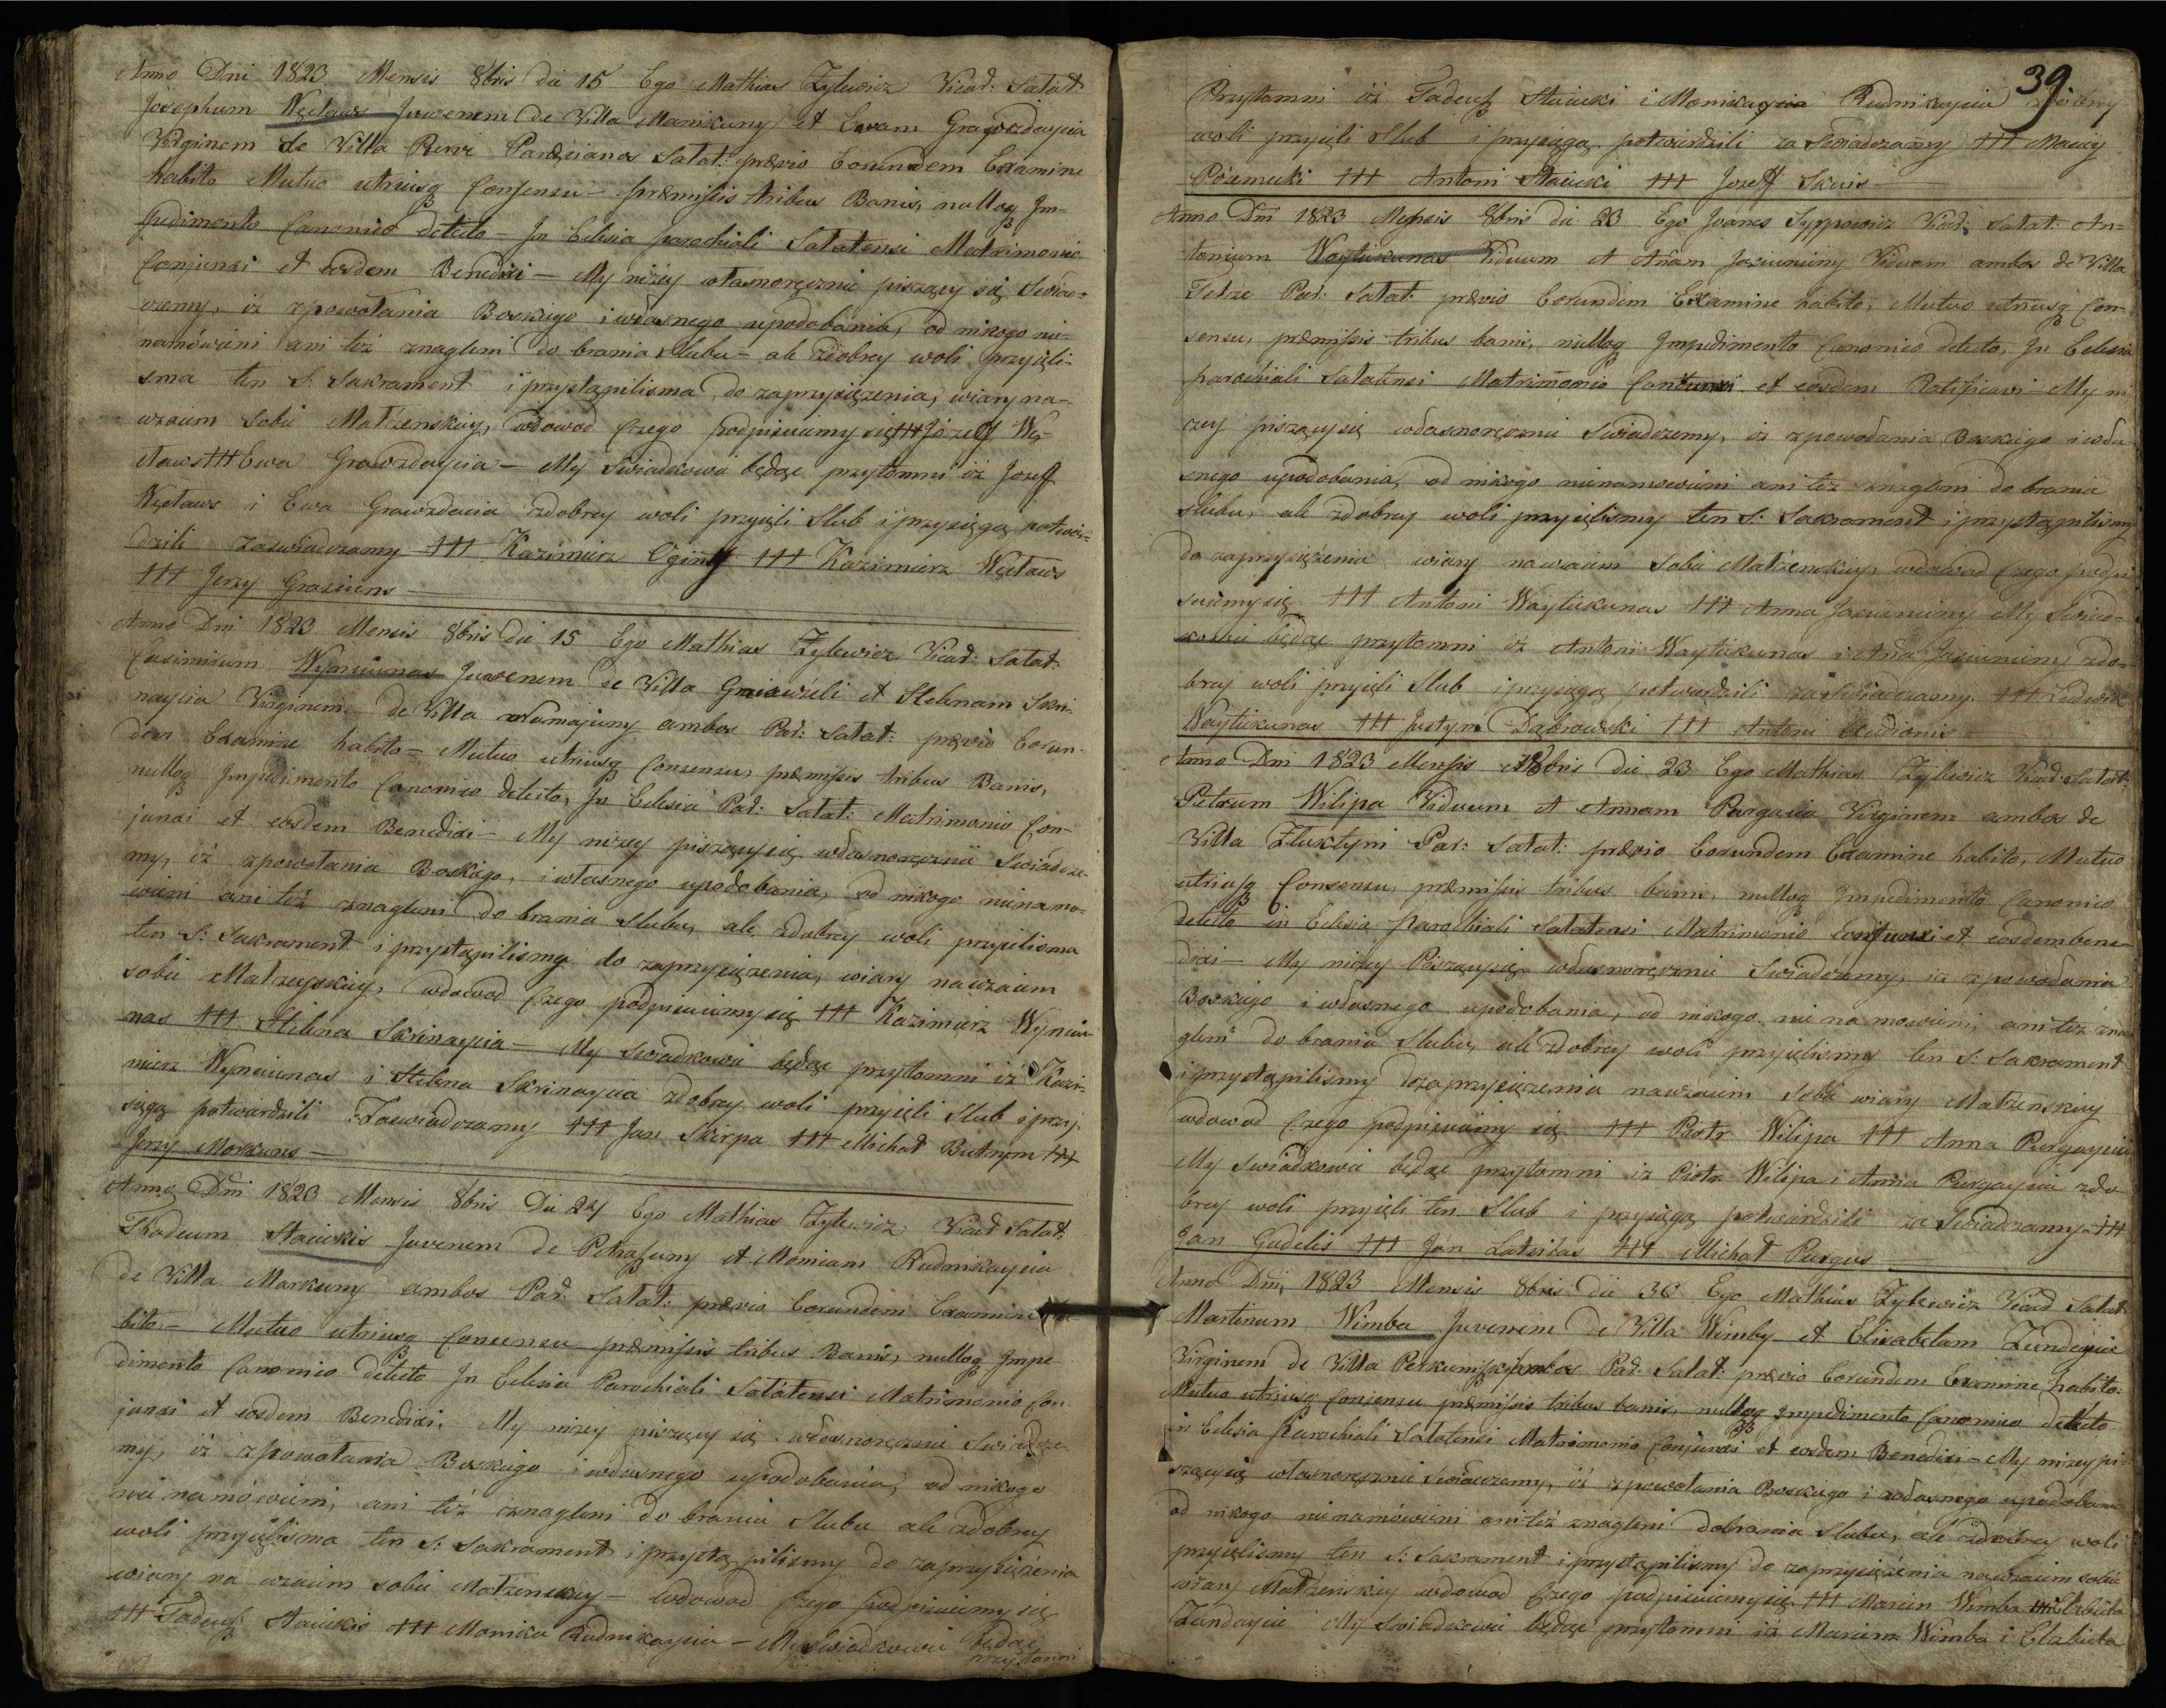 Anno Dni 1823 Mensis 8bris die 15 Ego Mathias Zylewicz Vicar: Salat:
Josephum Węcław Juvenem de Villa Manikuny et Evam Grawzdaycia
Virginem de Villa Parocianos Salat: prævio Eorundem Examine
habito Mutuo utriusq Consensu – præmissis tribus Banis, nulloq Im=
pedimento Canonico detecto – In Eclesia parochiali Salatensi Matrimonio
Conjunxi et eosdem Benedixi – My niżey własnoręcznie piszący się Świad=
czemy, iż zpowołania Boskiego i własnego upodobania, od nikogo nie=
namówieni ani też znagleni do brania Slubu – ale zdobrey woli przyięli=
sma ten S: Sakrament i przystąpilisma do zaprzysiężenia, wiary na=
wzaiem Sobie Małżenskiey, wdowod Czego podpisuiemy się +++ Józeff Wę=
cławs +++ Ewa Grawzdaycia – My Swiadkowie będąc przytomni iż Jozeff
Węcławs i Ewa Grawzdacia zdobrey woli przyięli Slub i przysięgą potwier=
dzili zaswiadczamy +++ Kazimierz Ogint +++ Kazimierz Węcławs
+++ Jerzy Graziuns
Anno Dni 1823 Mensis 8bris die 15 Ego Mathias Zylewicz Vicar: Salat:
Casimirum Wyniunas Juvenem de Villa et Helenam Skri-
naycia Virginem de Villa ambos Par: Salat: prævio Eorun-
dem Examine habito = Mutuo utriusq Consensu, præmissis tribus Banis,
nulloq Impedimento Canonico detecto, In Eclesia Par: Salat: Matrimonio Con-
junxi et eosdem Benedixi – My niżey piszący się własnoręcznie Swiadcze-
my, iż zpowołania Boskiego, i własnego upodobania, od nikogo nienamo-
wieni ani też znagleni do brania Slubu, ale zdobrey woli przyielisma
ten S: Sakrament i przystąpilismy do zaprzysiężenia, wiary nawzaiem
sobie Małżenskiey, wdowod Czego podpisuiemy się +++ Kazimierz Wyniu-
nas +++ Helena Skrinaycia – My swiadkowie będąc przytomni iż Kazi-
mierz Wyniunas i Helena Skrinaycia zdobrey woli przyięli Slub i przy-
sięgą potwierdzili Zaswiadczamy +++ Jan Skirpa +++ Michał Butrym +++
Jerzy Morkuns
Anno Dni 1823 Mensis 8bris Die 24 Ego Mathias Zylewicz Vicar Salat:
Thadeum Staickis Juvenem de et Monicam Rudnikaycia
de Villa Markuny ambos Par: Salat: prævio Eorundem Examine ha
bito – Mutuo utriusq Consensu præmissis tribus Banis, nulloq Impe
dimento Canonico detecto In Eclesia Parochiali Salatensi Matrimonio Con
junxi et eosdem Benedixi. My niżey piszący się własnoręcznie Swiadcze-
my, iż zpowołania Boskiego i własnego upodobania, od nikogo
nie namówieni, ani też znagleni do brania Slubu ale zdobrey
woli przyięlisma ten S: Sakrament, i przystąpilismy do zaprzysiężenia
wiary na wzaiem sobie Małżenskiey – wdowod Czego podpisuiemy się
+++ Tadeusz Staickis +++ Monika Rudnikaycia – My Swiadkowie będąc
przytomni
39
Przytomni iż Tadeusz Staicki i Monika Rudnikaycia zdobrey
woli przyięli Slub i przysięgą potwierdzili za Swiadczamy +++ Maciey
Poźemecki +++ Antoni Staicki +++ Jozeff Skuis
Anno Dni 1823 Mensis 8bris die 23 Ego Joanes Syppowicz Vicar: Salat: An=
tonium Waytiekunas Viduum et Annam Jasiuniuny Viduam ambos de Villa
Par: Salat: prævio Eorundem Examine habito, Mutuo utriusq Con-
sensu, præmissis tribus banis, nulloq Impedimento Canonico detecto, In Eclesia
parochiali Salatensi Matrimonio Coniunxi et eosdem Ratificavi – My ni
żey piszący się własnoręcznie Swiadczemy, iż zpowołania Boskiego i wła
snego upodobania, od nikogo nienamowieni ani też znagleni do brania
slubu, ale zdobrey woli przyięlismy ten S: Sakrament i przystąpilismy
do zaprzysiężenia wiary nawzaiem Sobie Małżenskiey, wdowod Czego podpi
suiemy się +++ Antoni Waytiekunas +++ Anna Jasiuniuny My Swiad=
kowie będąc przytomni iż Antoni Waytiekunas i Anna Jasiuniuny zdo=
brey woli przyięli Slub i przysięgą potwierdzili za Swiadczamy. +++ Ludwik
Waytiekunas +++ Justyn Dąbrowski +++ Antoni
Anno Dni 1823 Mensis 8bris die 23 Ego Mathias Zylewicz Vicar: Salat:
Petrum Wilipa Viduum et Annam Purgacia Virginem ambos de
Villa Zluktyni Par: Salat: prævio Eorundem Examine habito, Mutuo
utriusq Consensu, præmissis tribus banis, nulloq Impedimento Canonico
detecto in Eclesia Parochiali Salatensi Matrimonio Conjunxi et eosdem bene-
dixi – My niżey Piszący się własnoręcznie Swiadczemy, iż zpowołania
Boskiego i własnego upodobania, od nikogo nie namowieni, ani też zna
gleni do brania Slubu, ale zdobrey woli przyięlismy ten S: Sakrament
i przystąpilismy dozaprzysiężenia nawzaiem Sobie wiary Małżenskiey
wdowod Czego podpisuiemy się +++ Piotr Wilipa +++ Anna Purgaycia
My swiadkowie będąc przytomni iż Piotr Wilipa i Anna Purgaycia zdo
brey woli przyięli ten Slub i przysięgą potwierdzili za Swiadczamy +++
Jan Gudelis +++ Jan Latvitas +++ Michał Purgus
Anno Dni, 1823 Mensis 8bris die 30 Ego Mathias Zylewicz Vicar Salat:
Martinum Wimba Juvenem de Villa Wimby et Elisabetam Zundaycia
Virginem de Villa ambos Par: Salat: prævio Eorundem Examine habito:
Mutuo utriusq Consensu præmissis tribus banis, nulloq Impedimento Canonico detecto
in Eclesia Parochiali Salatensi Matrimonio Conjunxi et eosdem Benedixi – My niżey pi-
szący się własnoręcznie Swiadczemy, iż zpowołania Boskiego i własnego upodobania
od nikogo nienamówieni ani też znagleni dobrania slubu, ale zdobrey woli
przyięlismy ten S: Sakrament i przystąpilismy do zaprzysiężenia nawzaiem sobie
wiary Małżenskiey wdowod Czego podpisuiemy się +++ Marcin Wimba +++ Elzbieta
Zundaycia My Swiadkowie będąc przytomni iż Marcin Wimba i Elzbieta